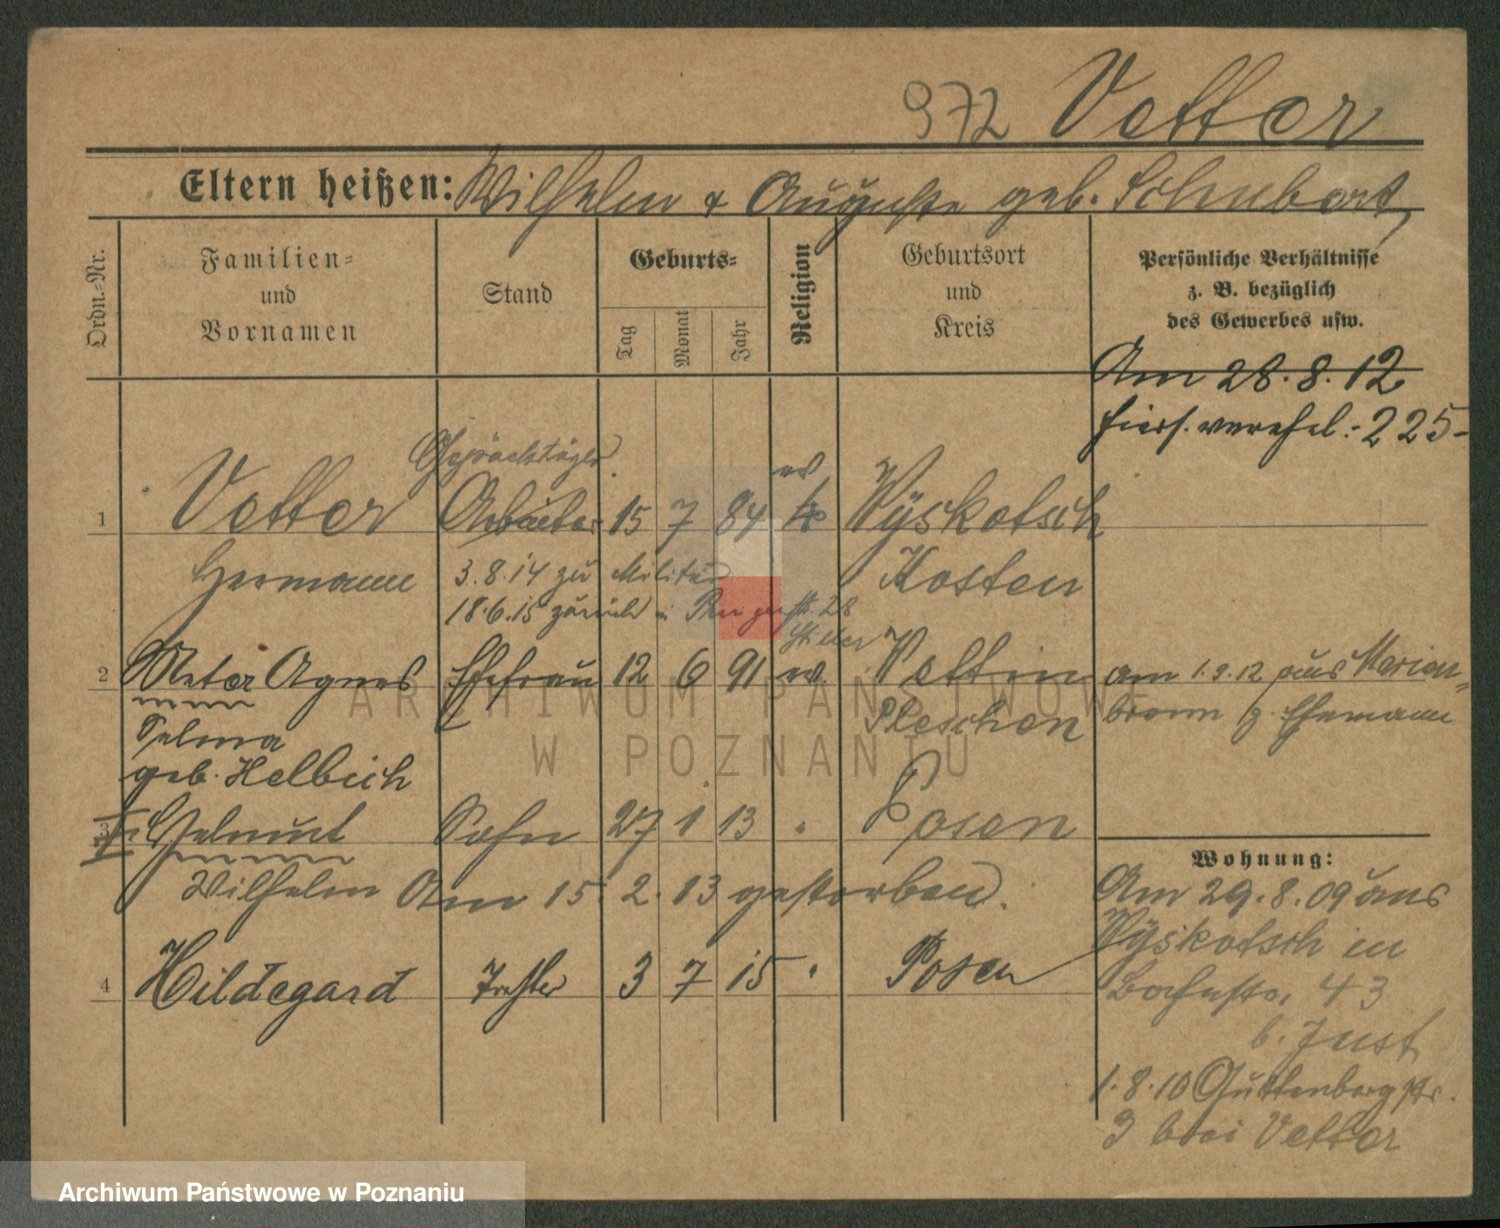 972 Vetter
Eltern heißen: Wilhelm & Auguste geb. Schubert
Ordn.-Nr.
Familien-
und
Vornamen
Stand
Geburts-
Tag
Monat
Jahr
Religion
Geburtsort
und
Kreis
Persönliche Verhältnisse
z. B. bezüglich
des Gewerbes usw.
Am 28.8.12
hiers. verehel.: 225-
Gepäckträger
1 Vetter Arbeiter 15 7 84 k ev Wyskotsch
Hermann Kosten
3.8.14 zu Militär
18.6.15 zurück 28
2 Agnes Ehefrau 12 6 91 ev. am 1.9.12 aus Marien-
Pleschen bronn z. Ehemann
Selma
geb. Helbich
3 Helmut Sohn 27 1 13 Posen
Wilhelm Am 15.2.13 gestorben.
4 Hildegard Tochter 3 7 15 " Posen
Wohnung:
Am 29.8.09 aus
Wyskotsch in
43
b. Just
1.8.10 Guttenbergstr.
3 bei Vetter
ARCHIWUM PAŃSTWOWE
W POZNANIU
Archiwum Państwowe w Poznaniu